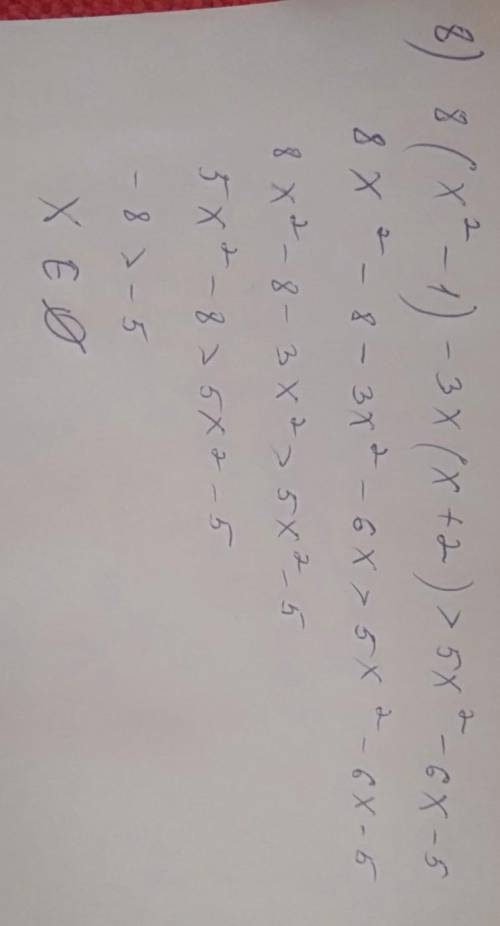 8) 8(x² - 1) - 3x(x+2) > 5x² - 6x - 5
8x² - 8 - 3x² - 6x > 5x² - 6x - 5
8x² - 8 - 3x² > 5x² - 5
5x² - 8 > 5x² - 5
-8 > -5
x ∈ ∅